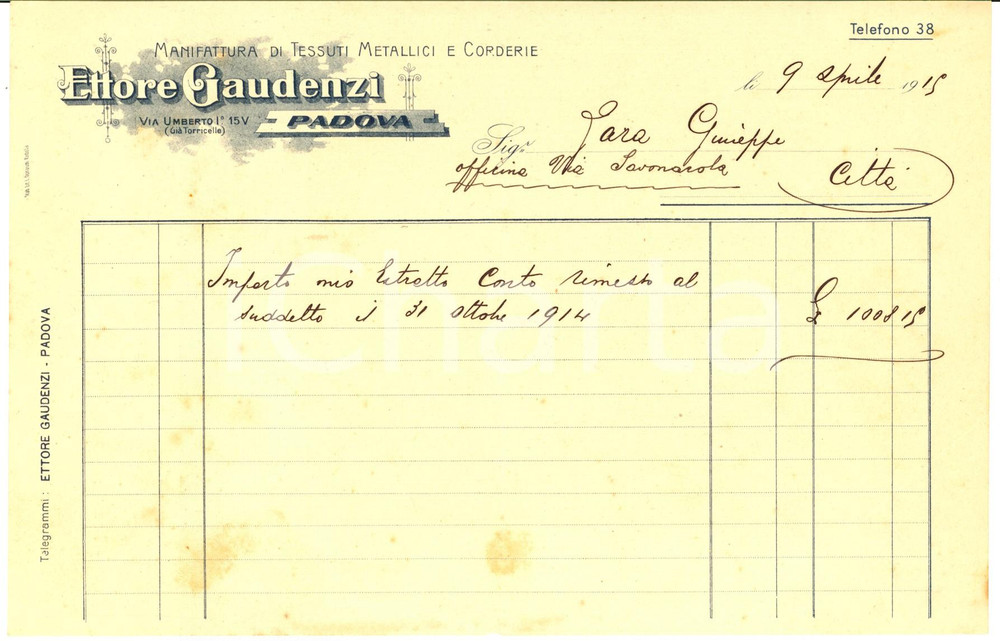 Telefono 38
MANIFATTURA DI TESSUTI METALLICI E CORDERIE
Ettore Gaudenzi
VIA UMBERTO I° 15V
(Già Torricelle)
PADOVA
li 9 Aprile 1915
Sigr Zara Giuseppe
officina Via Savonarola
Città
Importo mio Estratto Conto rimesso al
suddetto il 31 Ottobre 1914
£ 1008 15
Telegrammi: ETTORE GAUDENZI - PADOVA
charta